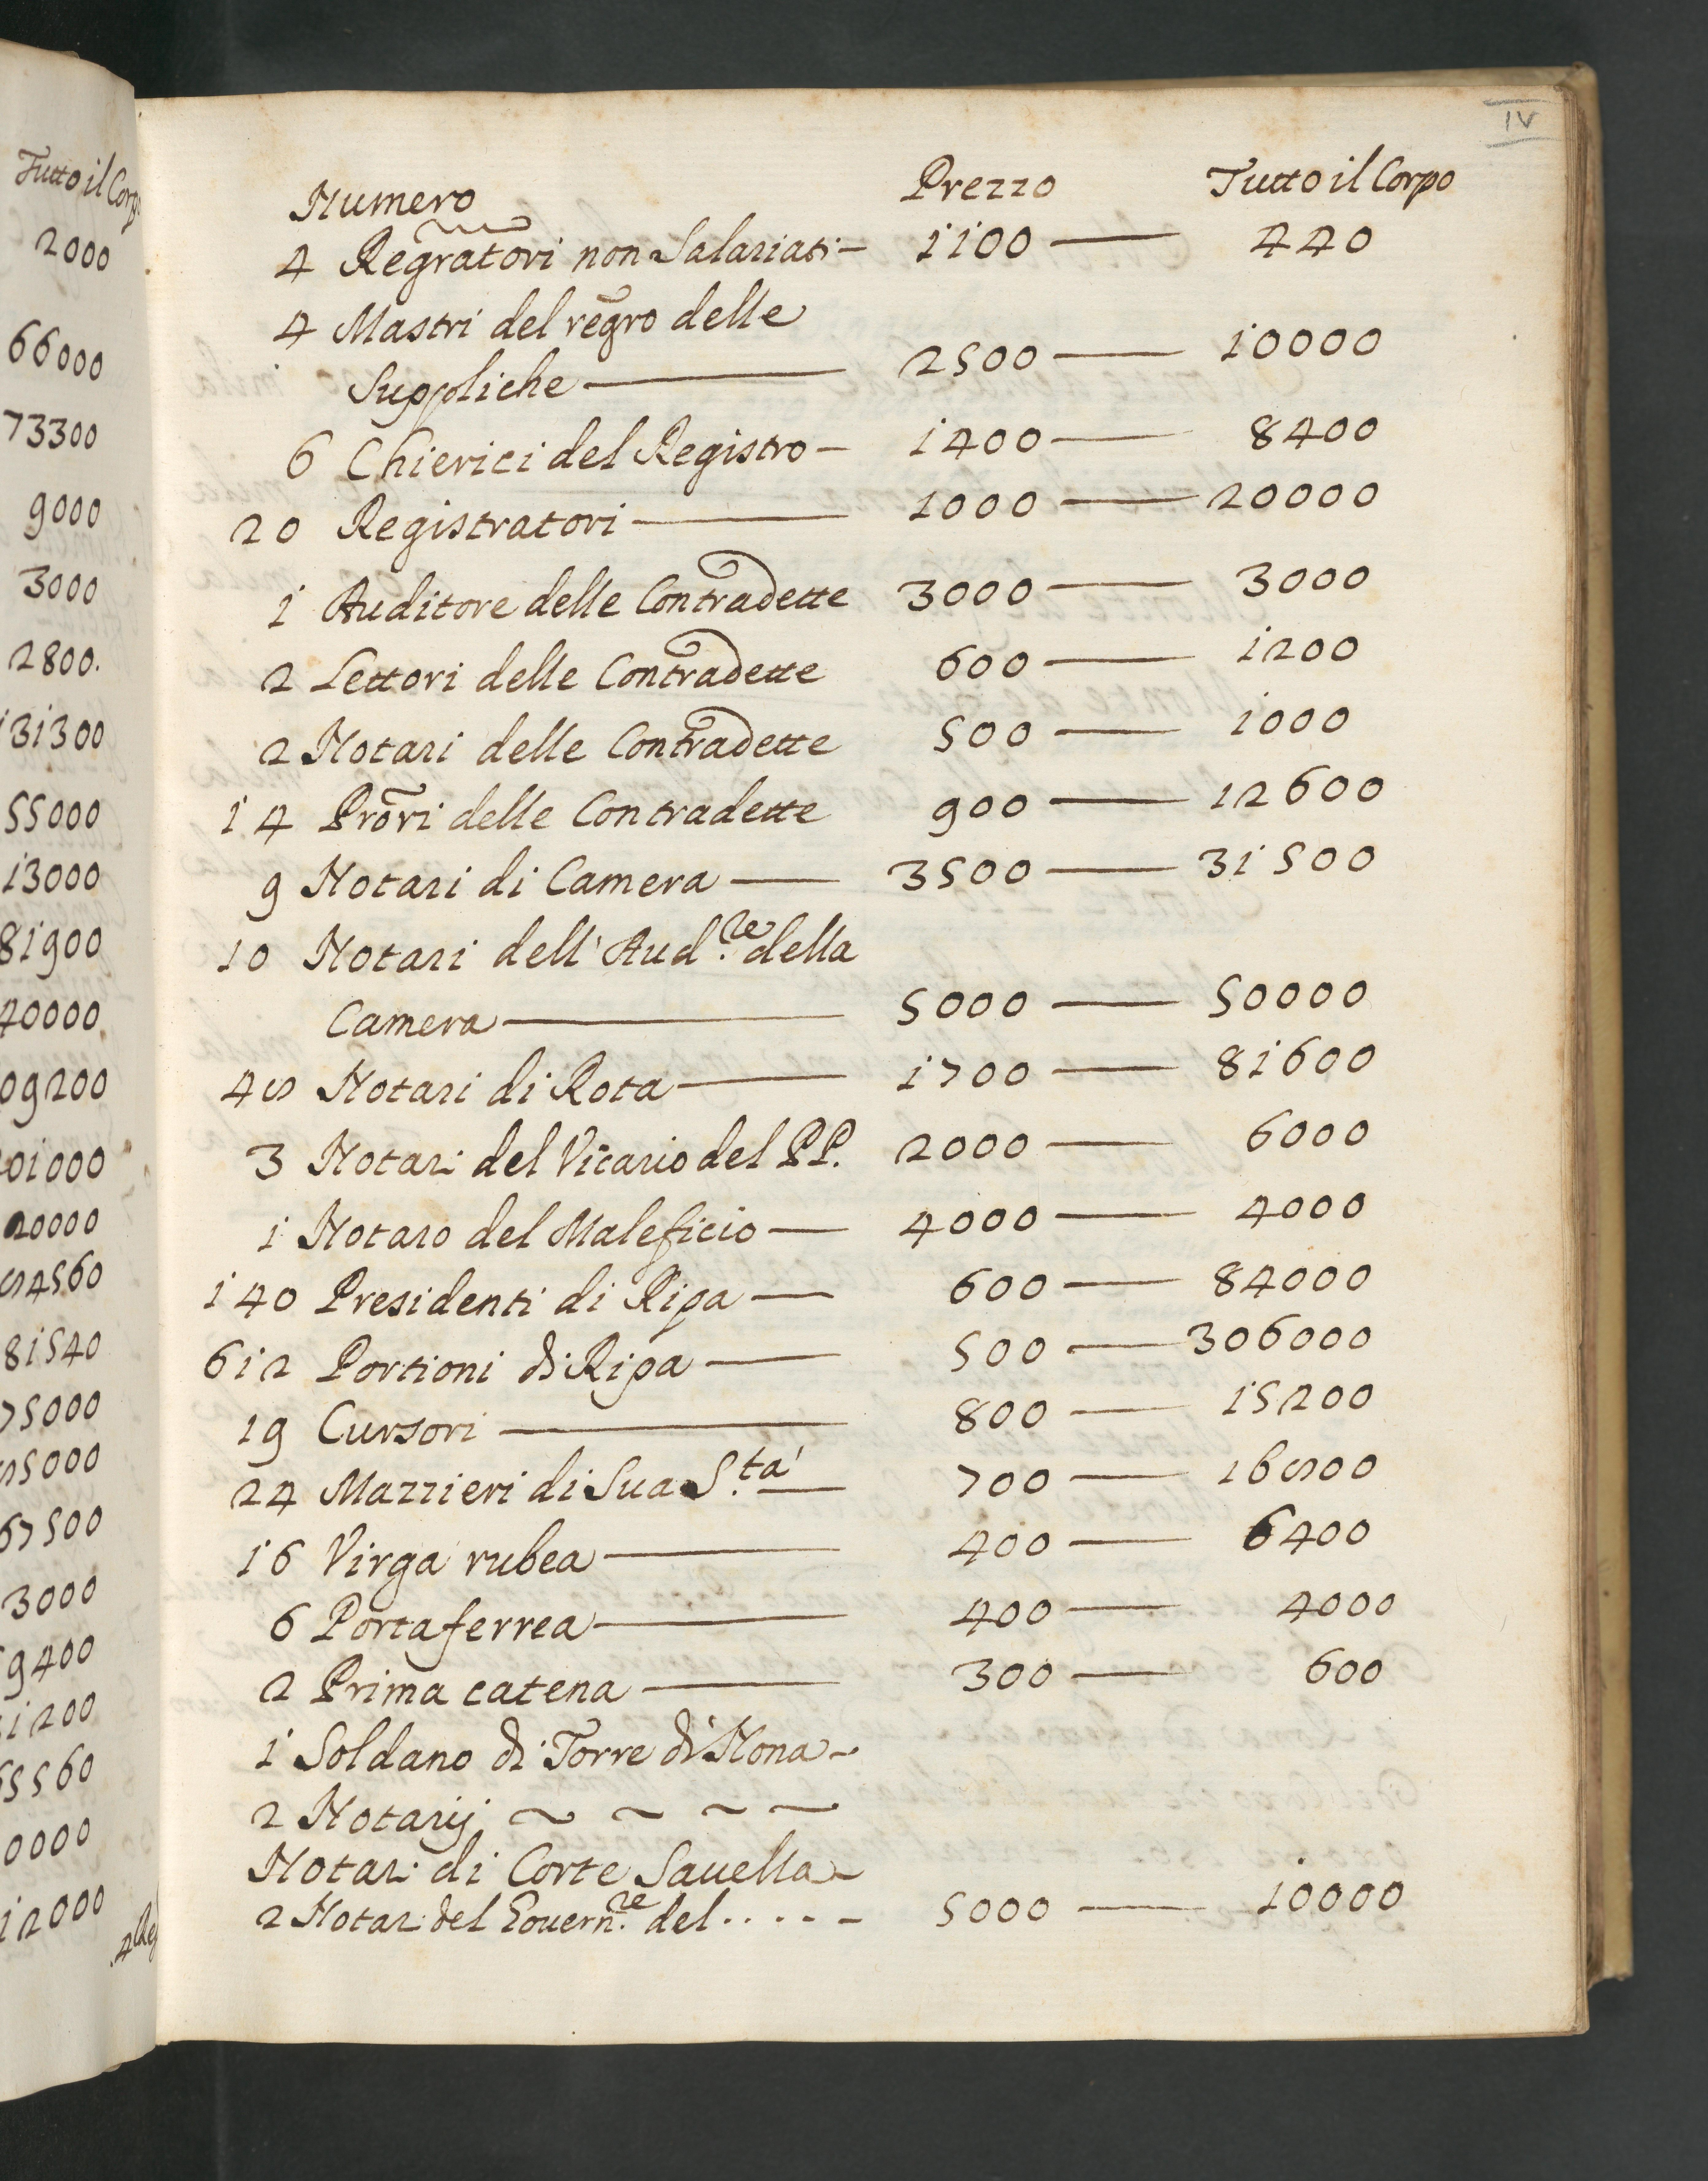 IV
Numero Prezzo Tutto il Corpo
4 Regratori non Salariati — 1100 — 440
4 Mastri del regro delle
Suppliche — 2500 — 10000
6 Chierici del Registro — 1400 — 8400
20 Registratori — 1000 — 20000
1 Auditore delle Contradette 3000 — 3000
2 Lettori delle Contradette 600 — 1200
2 Notari delle Contradette 500 — 1000
14 Prori delle Contradette 900 — 12600
9 Notari di Camera — 3500 — 31500
10 Notari dell' Aud.re della
Camera — 5000 — 50000
48 Notari di Rota — 1700 — 81600
3 Notari del Vicario del PP. 2000 — 6000
1 Notaro del Maleficio — 4000 — 4000
140 Presidenti di Ripa — 600 — 84000
612 Portioni di Ripa — 500 — 306000
19 Cursori — 800 — 15200
24 Mazzieri di Sua S.tà — 700 — 16800
16 Virga rubea — 400 — 6400
6 Porta ferrea — 400 — 4000
2 Prima catena — 300 — 600
1 Soldano di Torre di Nona -
2 Notarij ~ ~ ~ ~
Notari di Corte Sauella -
2 Notari del Gouern.re del . . . . - 5000 — 10000
Tutto il Corp
2000
66000
73300
9000
3000
2800.
131300
55000
13000
81900
40000
09200
01000
20000
84560
81540
75000
85000
67500
3000
9400
1200
5560
0000
12000
4 Reg